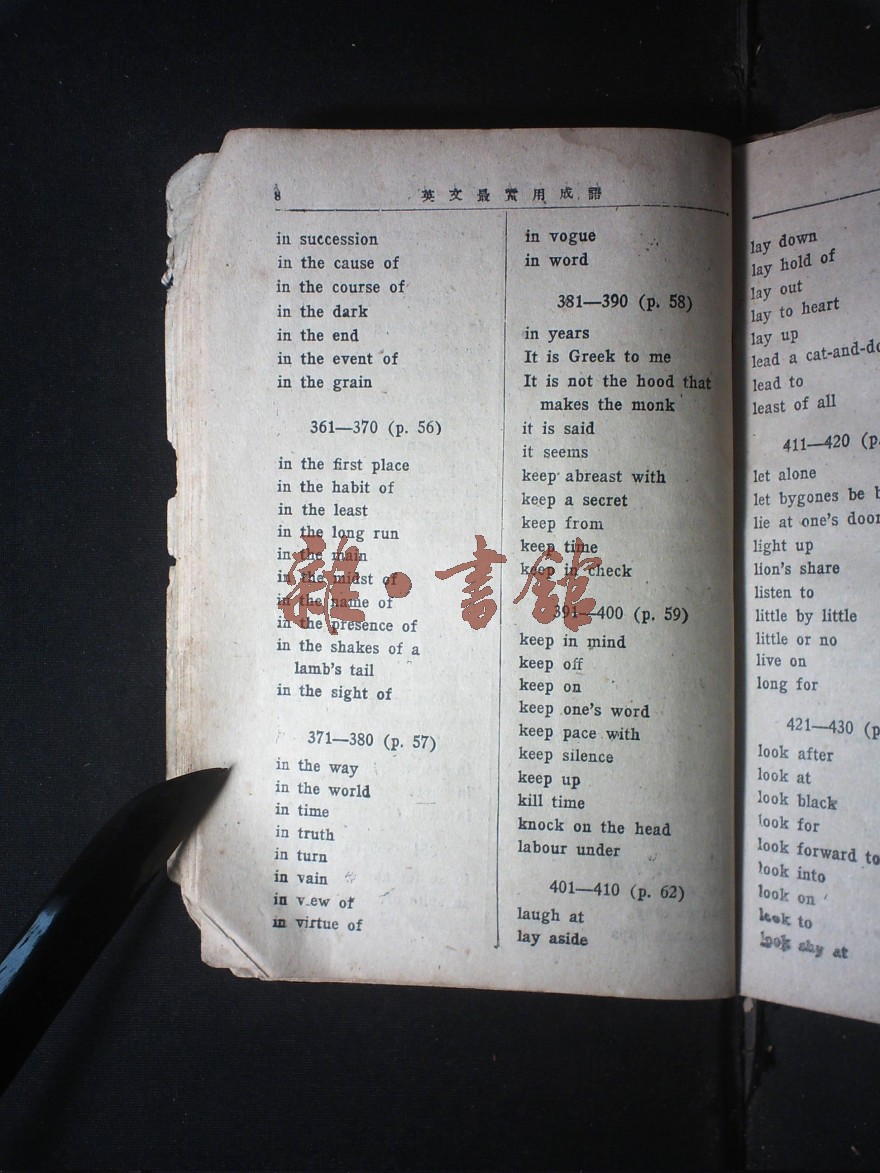 8
英文最實用成語
in succession
in the cause of
in the course of
in the dark
in the end
in the event of
in the grain
361—370 (p. 56)
in the first place
in the habit of
in the least
in the long run
in the main
in the midst of
in the name of
in the presence of
in the shakes of a
lamb's tail
in the sight of
371—380 (p. 57)
in the way
in the world
in time
in truth
in turn
in vain
in v.ew of
in virtue of
in vogue
in word
381—390 (p. 58)
in years
It is Greek to me
It is not the hood that
makes the monk
it is said
it seems
keep abreast with
keep a secret
keep from
keep time
keep in check
391—400 (p. 59)
keep in mind
keep off
keep on
keep one's word
keep pace with
keep silence
keep up
kill time
knock on the head
labour under
401—410 (p. 62)
laugh at
lay aside
lay down
lay hold of
lay out
lay to heart
lay up
lead a cat-and-do
lead to
least of all
411—420 (p.
let alone
let bygones be b
lie at one's door
light up
lion's share
listen to
little by little
little or no
live on
long for
421—430 (p
look after
look at
look black
look for
look forward to
look into
look on
look to
look shy at
雜·書館